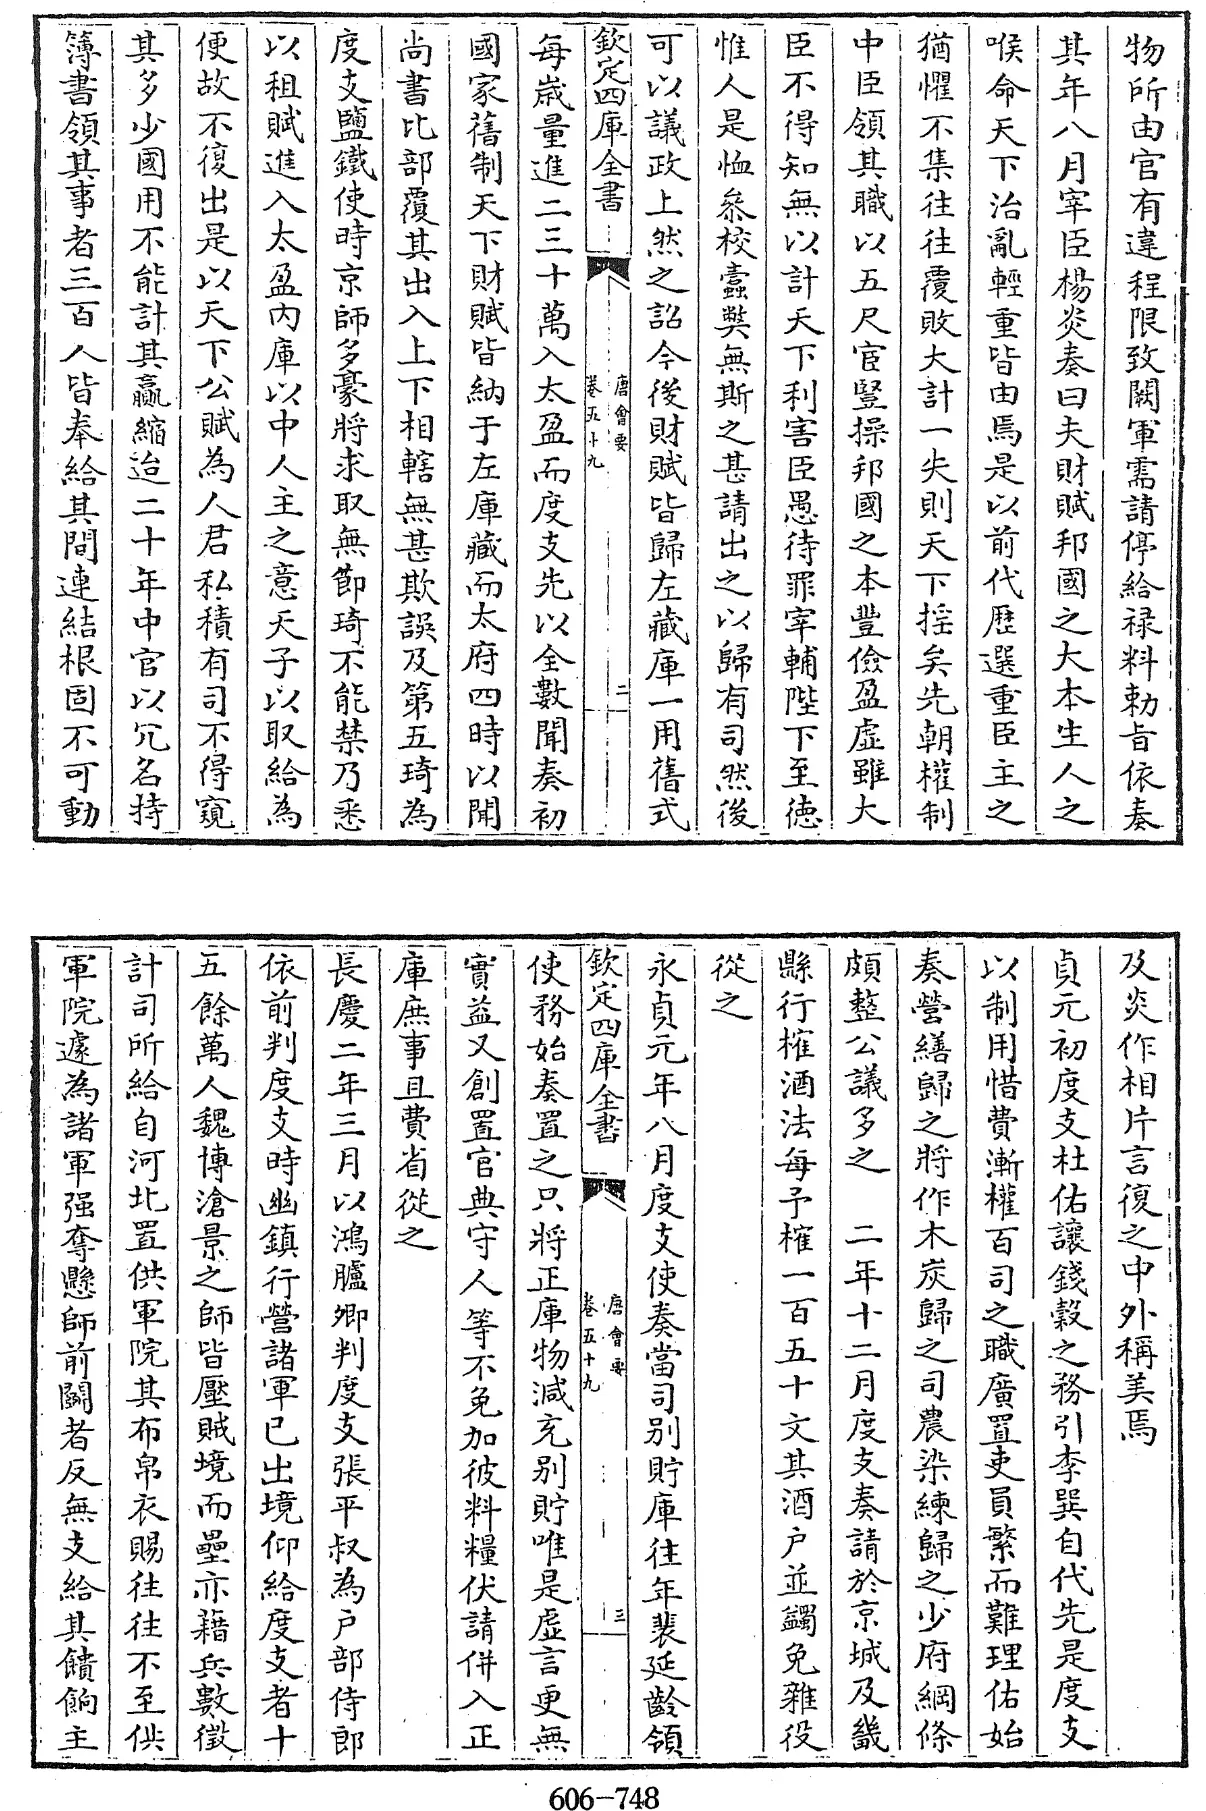 物所由官有違程限致闕軍需請停給祿料勅旨依奏
其年八月宰臣楊炎奏曰夫財賦邦國之大本生人之
喉命天下治亂輕重皆由焉是以前代歷選重臣主之
猶懼不集往往覆敗大計一失則天下揺矣先朝權制
中臣領其職以五尺宦豎操邦國之本豐儉盈虛雖大
臣不得知無以計天下利害臣愚待罪宰輔陛下至德
惟人是恤叅校蠧弊無斯之甚請出之以歸有司然後
可以議政上然之詔今後財賦皆歸左藏庫一用舊式
欽定四庫全書
唐會要
卷五十九
二
每歲量進二三十萬入太盈而度支先以全數聞奏初
國家舊制天下財賦皆納于左庫藏而太府四時以聞
尚書比部覆其出入上下相轄無甚欺誤及第五琦為
度支鹽鐵使時京師多豪將求取無節琦不能禁乃悉
以租賦進入太盈内庫以中人主之意天子以取給為
便故不復出是以天下公賦為人君私積有司不得窺
其多少國用不能計其贏縮迨二十年中官以冗名持
簿書領其事者三百人皆奉給其間連結根固不可動
及炎作相片言復之中外稱美焉
貞元初度支杜佑讓錢穀之務引李巽自代先是度支
以制用惜費漸權百司之職廣置吏員繁而難理佑始
奏營繕歸之將作木炭歸之司農染練歸之少府綱條
頗整公議多之 二年十二月度支奏請於京城及畿
縣行榷酒法每予榷一百五十文其酒户並蠲免雜役
從之
永貞元年八月度支使奏當司别貯庫往年裴延齡領
欽定四庫全書
唐會要
卷五十九
三
使務始奏置之只將正庫物減充别貯唯是虛言更無
實益又創置官典守人等不免加彼料糧伏請併入正
庫庶事且費省從之
長慶二年三月以鴻臚卿判度支張平叔為户部侍郎
依前判度支時幽鎮行營諸軍已出境仰給度支者十
五餘萬人魏博滄景之師皆壓賊境而壘亦藉兵數徵
計司所給自河北置供軍院其布帛衣賜往往不至供
軍院遽為諸軍强奪懸師前鬭者反無支給其饋餉主
606-748